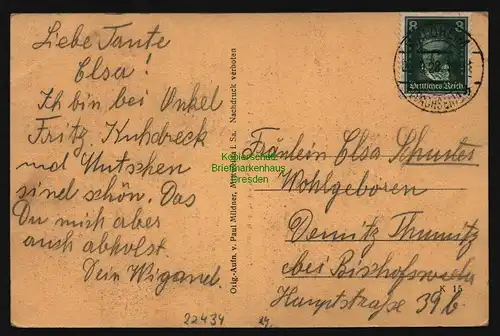 Liebe Tante
Elsa!
Ich bin bei Onkel
Fritz. Kuhdreck
und Hutschen
sind schön. Das
Du mich aber
auch abholst
Dein Wigand.
Orig.-Aufn. v. Paul Mildner, i. Sa. Nachdruck verboten
8 8
Deutsches Reich
SACHSEN
Kopierschutz
Briefmarkenhaus
Dresden
Fräulein Elsa Schuster
Wohlgeboren
Demitz Thumitz
bei Bischofswerda
K 15
Hauptstraße 39b.
22434